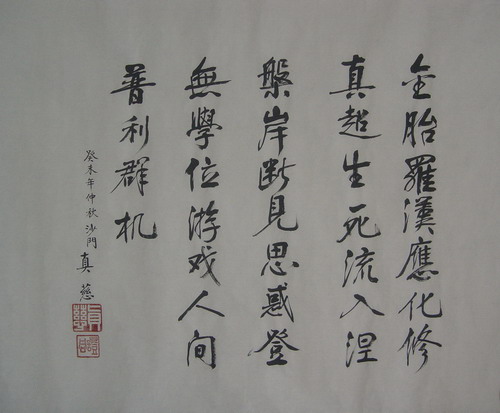 全胎羅漢應化修
真超生死流入涅
槃岸斷見思惑登
無學位游戏人间
普利群机
癸未年仲秋沙門真慈